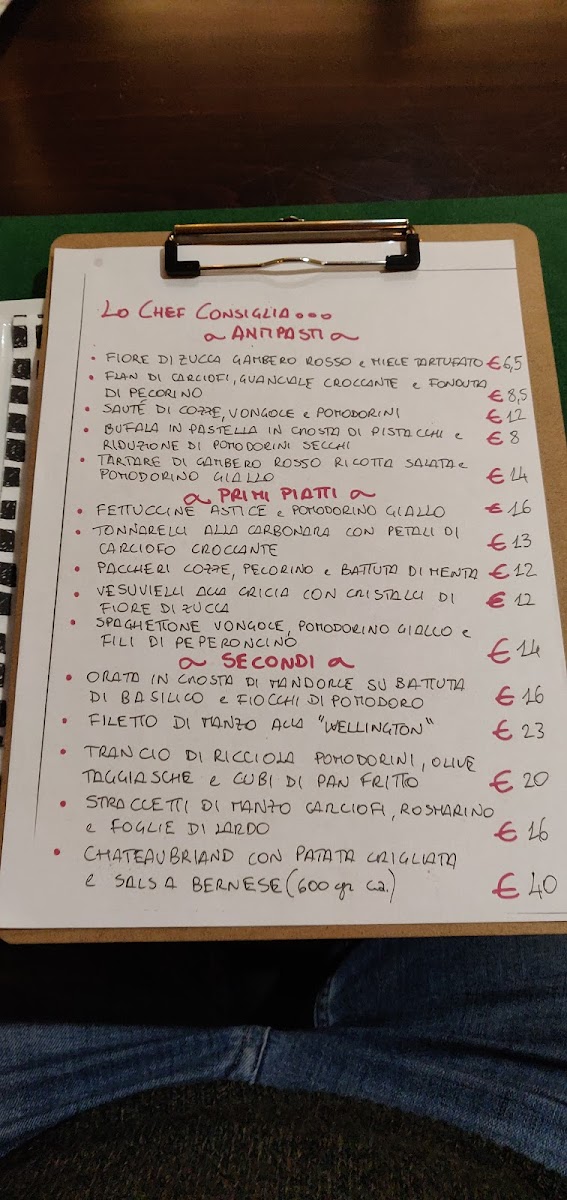 LO CHEF CONSIGLIA...
~ ANTIPASTI ~
• FIORE DI ZUCCA GAMBERO ROSSO e MIELE TARTUFATO € 6,5
• FLAN DI CARCIOFI, GUANCIALE CROCCANTE e FONDUTA
DI PECORINO € 8,5
• SAUTÉ DI COZZE, VONGOLE e POMODORINI € 12
• BUFALA IN PASTELLA IN CROSTA DI PISTACCHI e
RIDUZIONE DI POMODORINI SECCHI € 8
• TARTARE DI GAMBERO ROSSO RICOTTA SALATA e
POMODORINO GIALLO € 14
~ PRIMI PIATTI ~
• FETTUCCINE ASTICE e POMODORINO GIALLO € 16
• TONNARELLI ALLA CARBONARA CON PETALI DI
CARCIOFO CROCCANTE € 13
• PACCHERI COZZE, PECORINO e BATTUTA DI MENTA € 12
• VESUVIELLI ALLA GRICIA CON CRISTALLI DI
FIORE DI ZUCCA € 12
• SPAGHETTONE VONGOLE, POMODORINO GIALLO e
FILI DI PEPERONCINO € 14
~ SECONDI ~
• ORATA IN CROSTA DI MANDORLE SU BATTUTA
DI BASILICO e FIOCCHI DI POMODORO € 16
• FILETTO DI MANZO ALLA "WELLINGTON" € 23
• TRANCIO DI RICCIOLA POMODORINI, OLIVE
TAGGIASCHE e CUBI DI PAN FRITTO € 20
• STRACCETTI DI MANZO CARCIOFI, ROSMARINO
e FOGLIE DI LARDO € 16
• CHATEAUBRIAND CON PATATA GRIGLIATA
e SALSA BERNESE (600 gr ca.) € 40